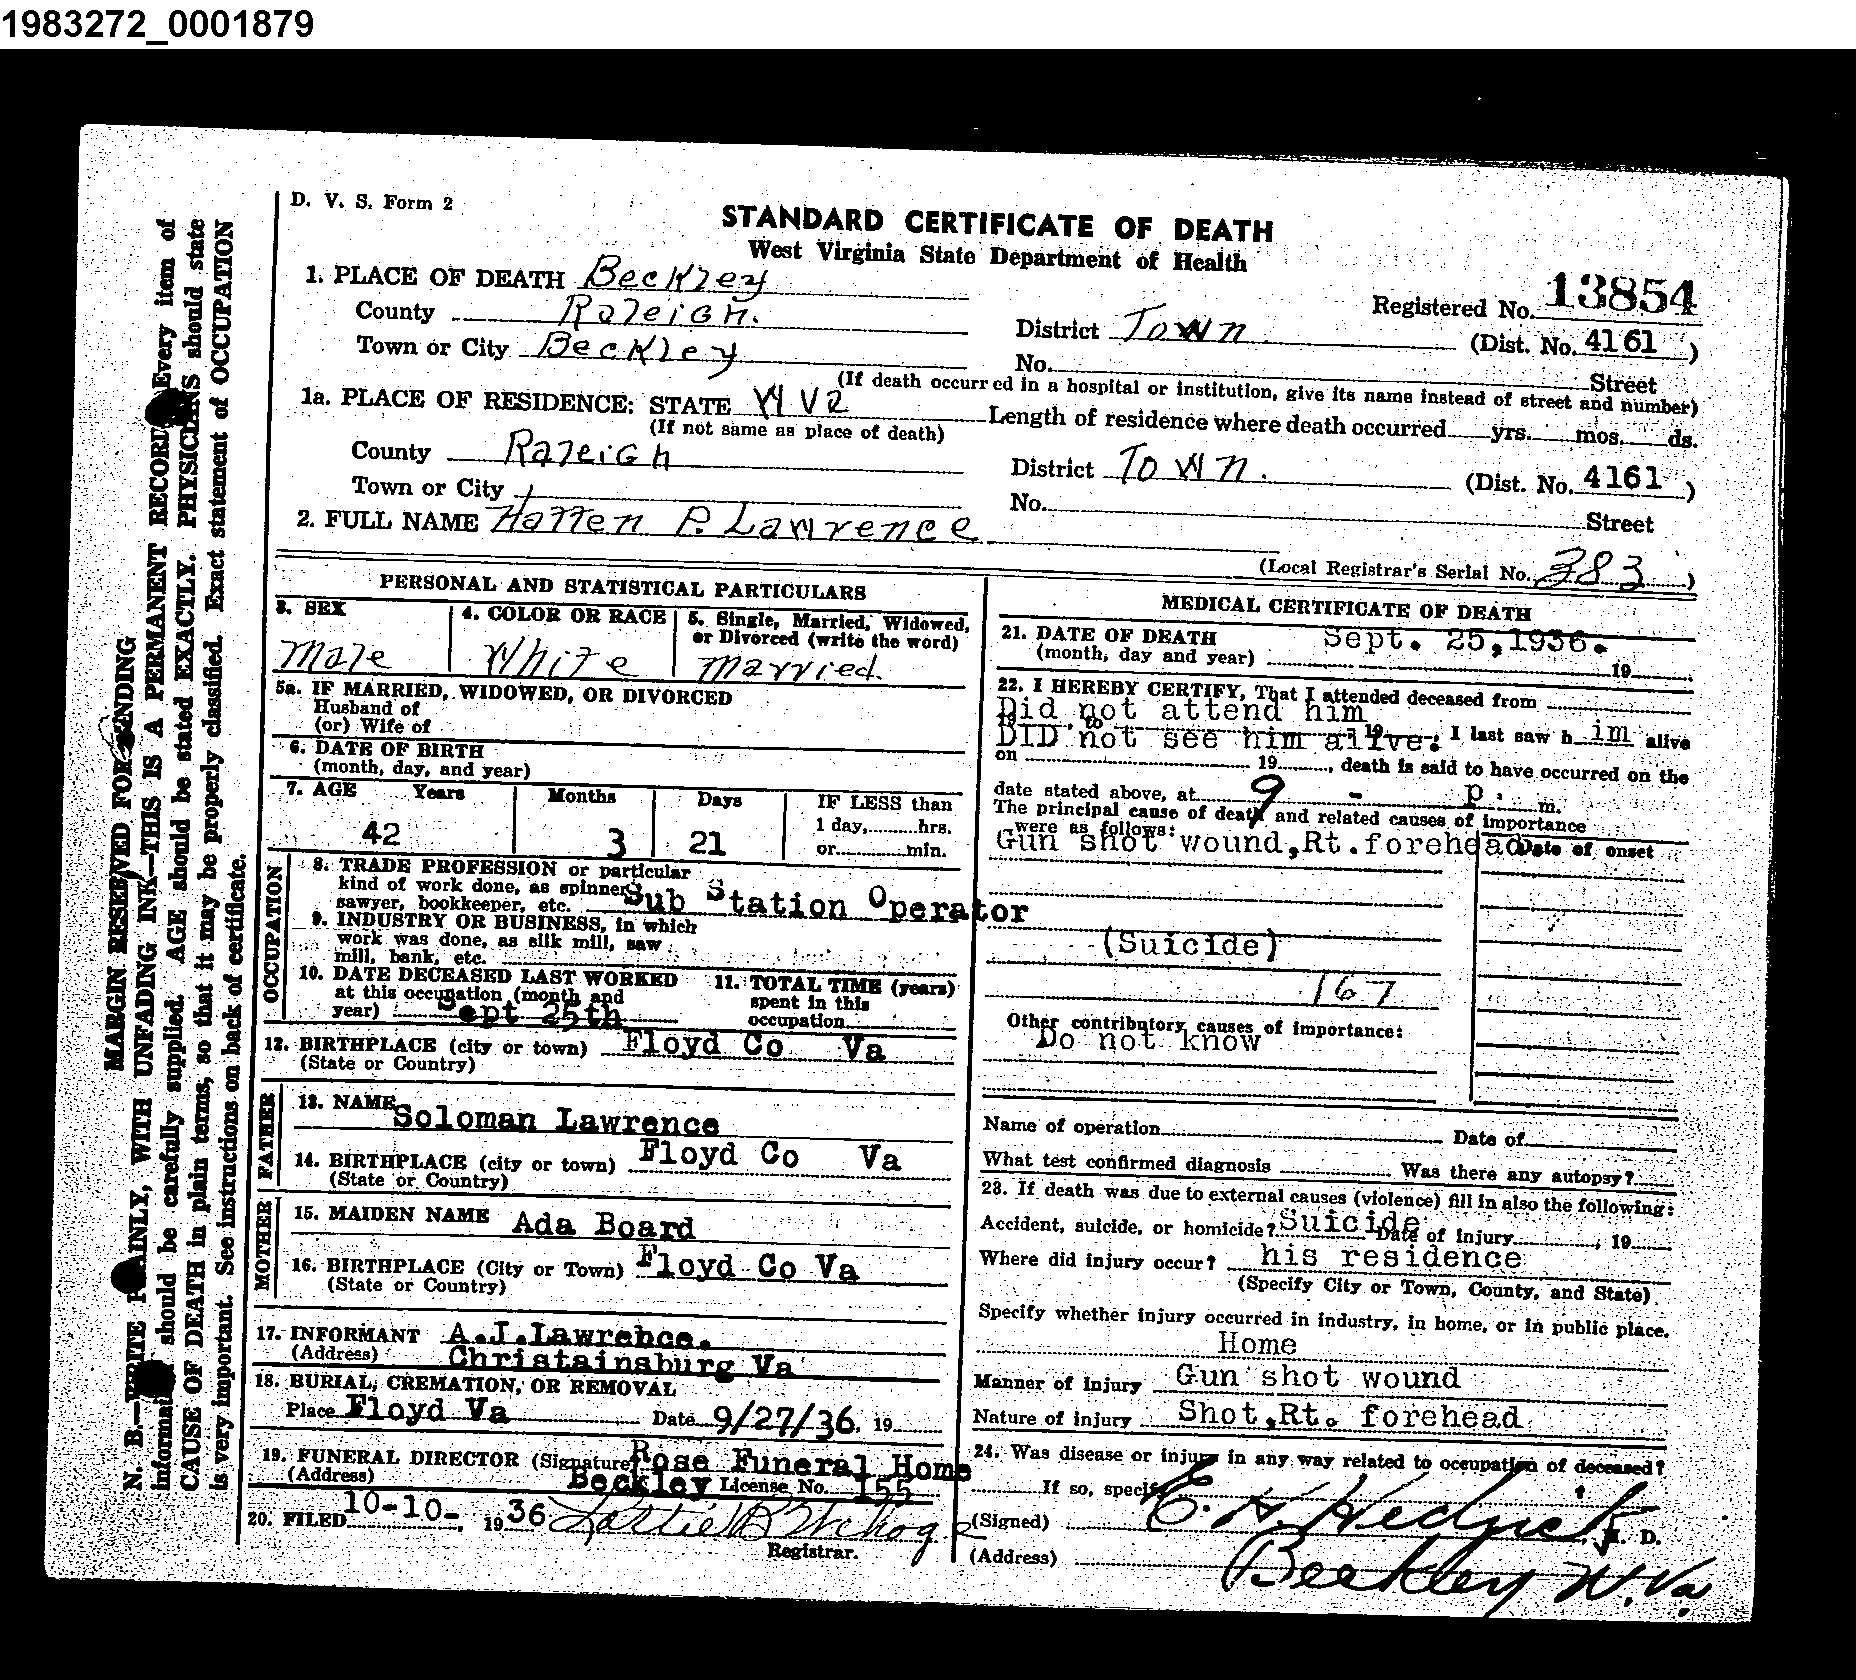 1983272_0001879
D. V. S. Form 2
STANDARD CERTIFICATE OF DEATH
West Virginia State Department of Health
1. PLACE OF DEATH Beckley
Registered No. 13854
County Raleigh.
District Town
(Dist. No. 4161 )
Town or City Beckley
No. Street
(If death occurred in a hospital or institution, give its name instead of street and number)
1a. PLACE OF RESIDENCE: STATE W Va
Length of residence where death occurred yrs. mos. ds.
(If not same as place of death)
County Raleigh
District Town.
(Dist. No. 4161 )
Town or City
No. Street
2. FULL NAME Hatten P. Lawrence
(Local Registrar's Serial No. 383 )
PERSONAL AND STATISTICAL PARTICULARS
3. SEX
Male
4. COLOR OR RACE
White
5. Single, Married, Widowed,
or Divorced (write the word)
Married.
5a. IF MARRIED, WIDOWED, OR DIVORCED
Husband of
(or) Wife of
6. DATE OF BIRTH
(month, day, and year)
7. AGE Years Months Days IF LESS than
1 day, hrs.
42 3 21
or min.
OCCUPATION
8. TRADE PROFESSION or particular
kind of work done, as spinner,
sawyer, bookkeeper, etc. Sub Station Operator
9. INDUSTRY OR BUSINESS, in which
work was done, as silk mill, saw
mill, bank, etc.
10. DATE DECEASED LAST WORKED
at this occupation (month and
year) Sept 25th
11. TOTAL TIME (years)
spent in this
occupation
12. BIRTHPLACE (city or town) Floyd Co Va
(State or Country)
FATHER
13. NAME Soloman Lawrence
14. BIRTHPLACE (city or town) Floyd Co Va
(State or Country)
MOTHER
15. MAIDEN NAME Ada Board
16. BIRTHPLACE (City or Town) Floyd Co Va
(State or Country)
17. INFORMANT A.J.Lawrence.
(Address) Christainsburg Va
18. BURIAL, CREMATION, OR REMOVAL
Place Floyd Va Date 9/27/36, 19
19. FUNERAL DIRECTOR (Signature) Rose Funeral Home
(Address) Beckley License No. 155
20. FILED 10-10-, 1936
Registrar.
MEDICAL CERTIFICATE OF DEATH
21. DATE OF DEATH Sept. 25,1936.
(month, day and year) 19
22. I HEREBY CERTIFY, That I attended deceased from
Did not attend him
19 to 19
DID not see him alive. I last saw h im alive
on 19 , death is said to have occurred on the
date stated above, at 9 - p. m.
The principal cause of death and related causes of importance
were as follows:
Date of onset
Gun shot wound,Rt.forehead
(Suicide)
167
Other contributory causes of importance:
Do not know
Name of operation Date of
What test confirmed diagnosis Was there any autopsy?
23. If death was due to external causes (violence) fill in also the following:
Accident, suicide, or homicide? Suicide Date of injury , 19
Where did injury occur? his residence
(Specify City or Town, County, and State)
Specify whether injury occurred in industry, in home, or in public place.
Home
Manner of injury Gun shot wound
Nature of injury Shot,Rt. forehead
24. Was disease or injury in any way related to occupation of deceased?
If so, specify
(Signed) E. H. Hedrick, M. D.
(Address) Beckley W. Va.
MARGIN RESERVED FOR BINDING
N. B.—WRITE PLAINLY, WITH UNFADING INK—THIS IS A PERMANENT RECORD. Every item of
information should be carefully supplied. AGE should be stated EXACTLY. PHYSICIANS should state
CAUSE OF DEATH in plain terms, so that it may be properly classified. Exact statement of OCCUPATION
is very important. See instructions on back of certificate.